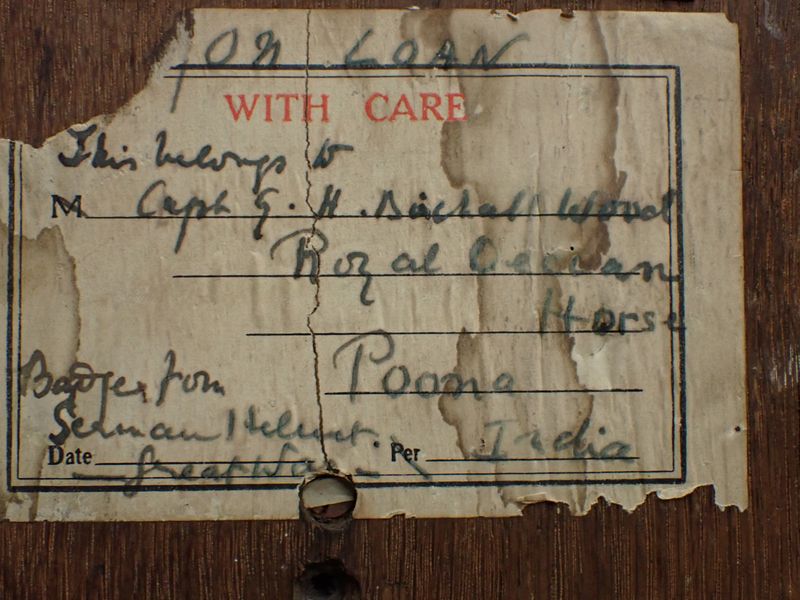 ON LOAN
WITH CARE
This belongs to
M Capt G. H. Birchall Wood
Royal Deccan
Horse
Poona
Badge from
German Helmet.
Date Per India
Great War